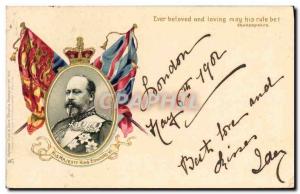 Ever beloved and loving may his rule be!
Shakespeare.
London
May 6th 1902
HIS MAJESTY KING EDWARD
Best love and
kisses